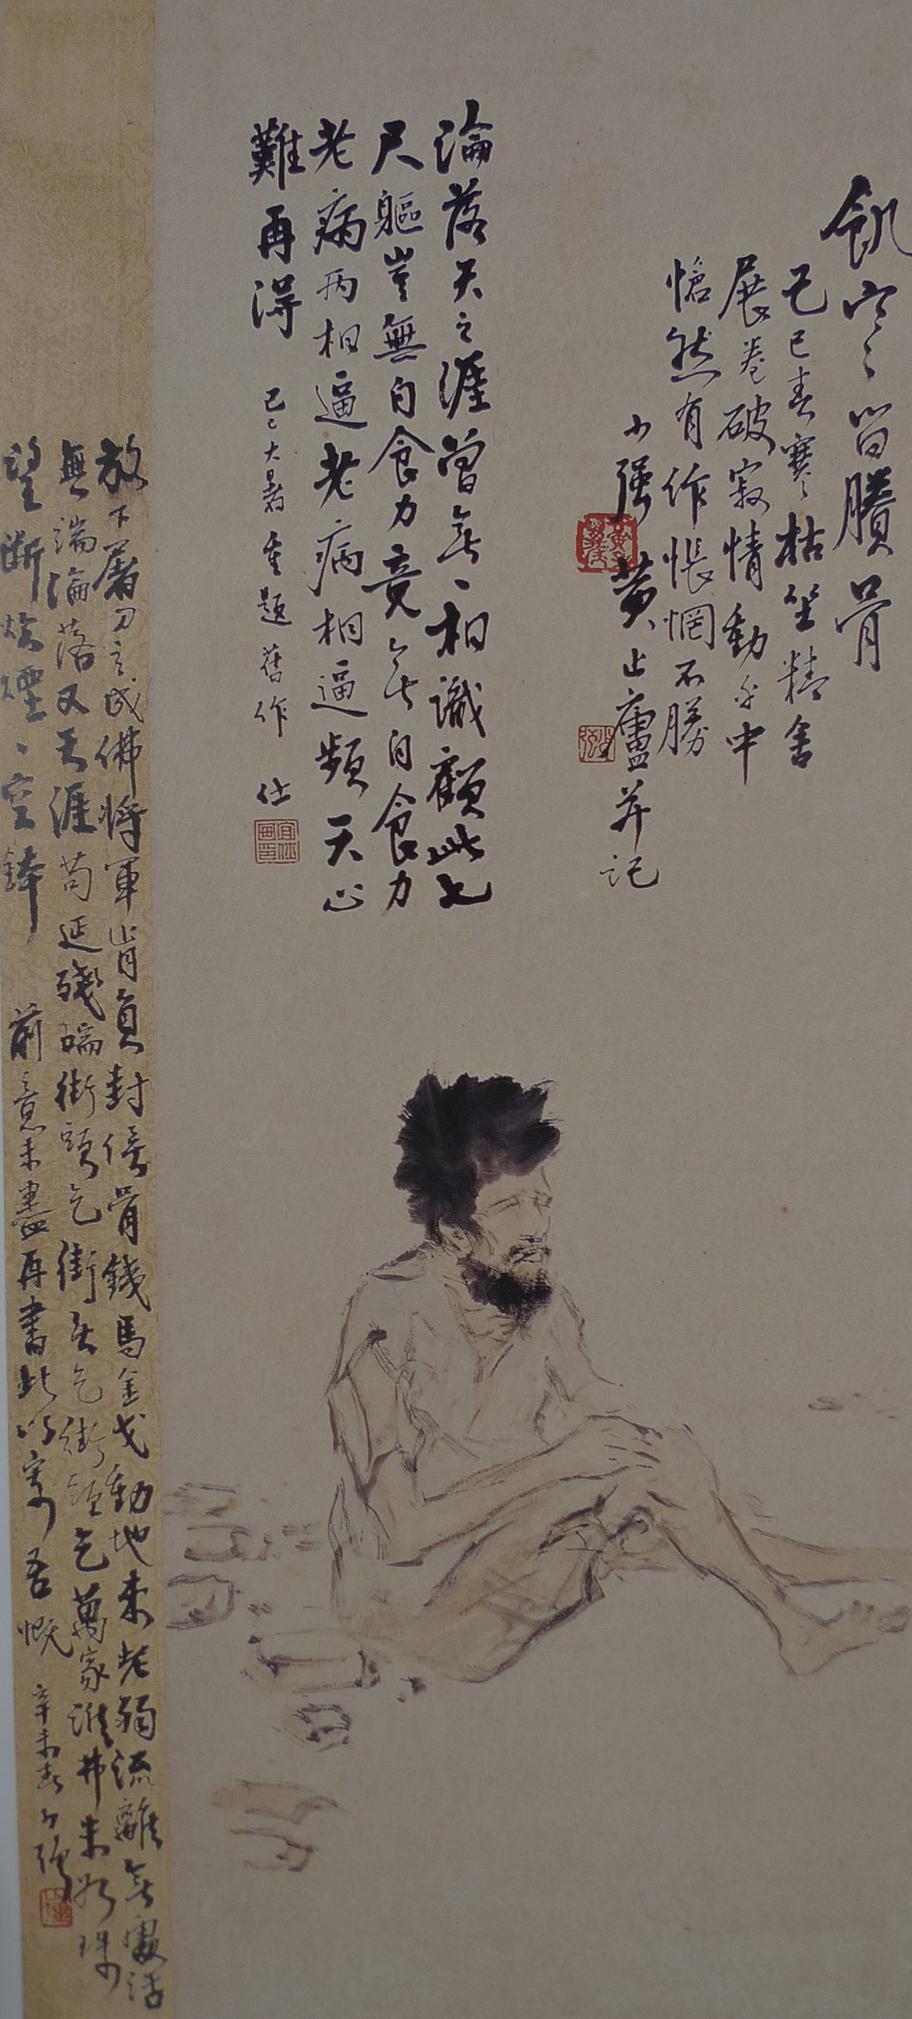 飢寒寒皆賸骨
己巳春寒寒枯坐精舍
展卷破寂情動乎中
愴然有作悵惘不勝
少强黄止廬并記
淪落天之涯曾無無相識顧此七
尺軀豈無自食力竟無自食力
老病兩相逼老病相逼頻天心
難再得
己巳大暑重題舊作 仕
放下屠刀立成佛將軍肯負封侯骨錢馬金戈動地来老弱流離無處活
無端淪落又天涯苟延殘喘街頭乞街頭乞街頭乞萬家誰弗米如珠
望斷炊煙煙空鉢
前意未盡再書此以寄吾慨
辛未春少强